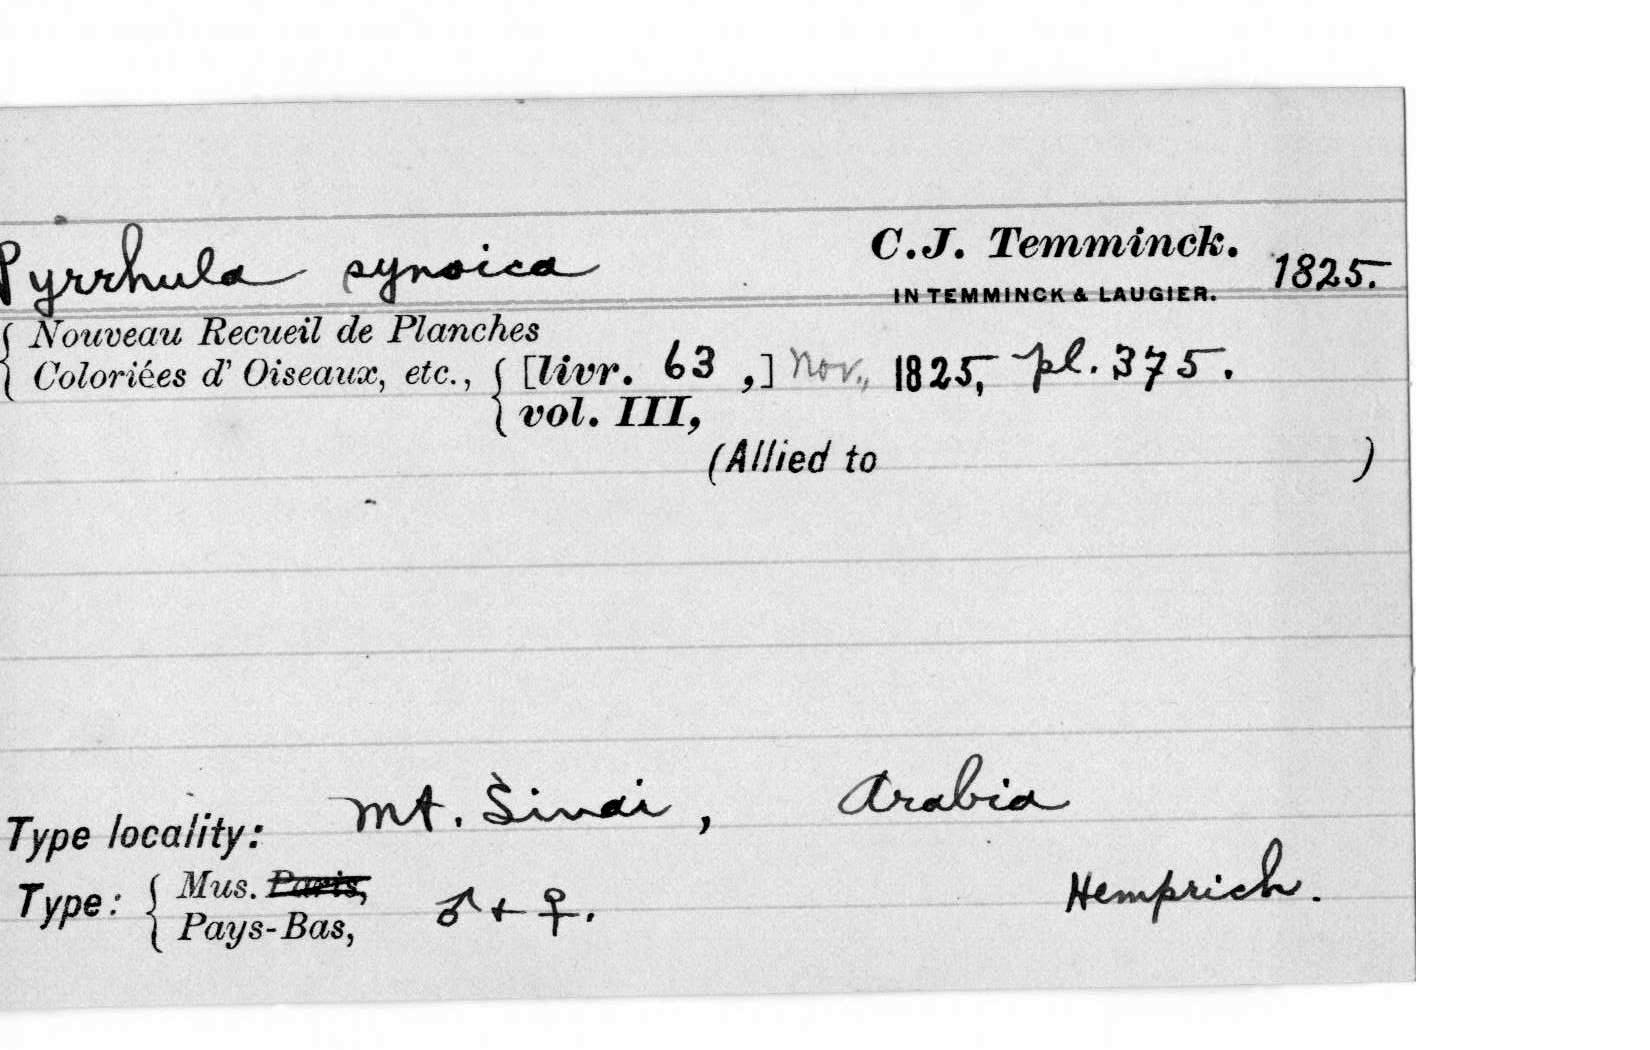 Pyrrhula synoica C.J. Temminck. 1825.
IN TEMMINCK & LAUGIER.
Nouveau Recueil de Planches
Coloriées d' Oiseaux, etc., [livr. 63 ,] Nov., 1825, pl. 375.
vol. III,
(Allied to )
Type locality: Mt. Sinai, Arabia
Type: Mus. Paris, ♂ + ♀. Hemprich.
Pays-Bas,